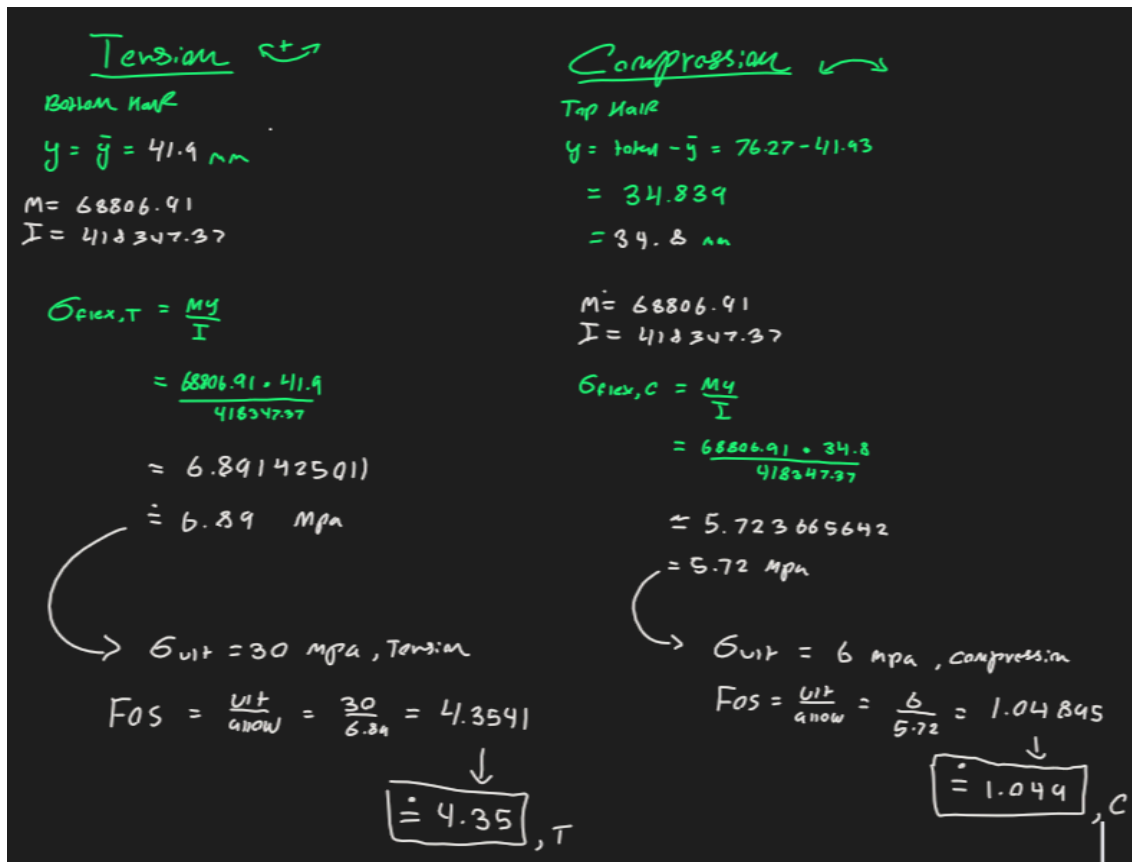 Tension +
Bottom Half
y = ȳ = 41.9 mm
M= 68806.91
I = 418347.37
σflex,T = My/I
= 68806.91 • 41.9 / 418347.37
= 6.891425011
≐ 6.89 Mpa
σult = 30 mpa, Tension
FOS = ult/allow = 30/6.89 = 4.3541
↓
≐ 4.35, T
Compression
Top Half
y = total - ȳ = 76.27-41.93
= 34.839
= 34.8 mm
M= 68806.91
I = 418347.37
σflex,C = My/I
= 68806.91 • 34.8 / 418347.37
= 5.723665642
= 5.72 Mpa
σult = 6 mpa, compression
FOS = ult/allow = 6/5.72 = 1.04895
↓
≐ 1.049, C